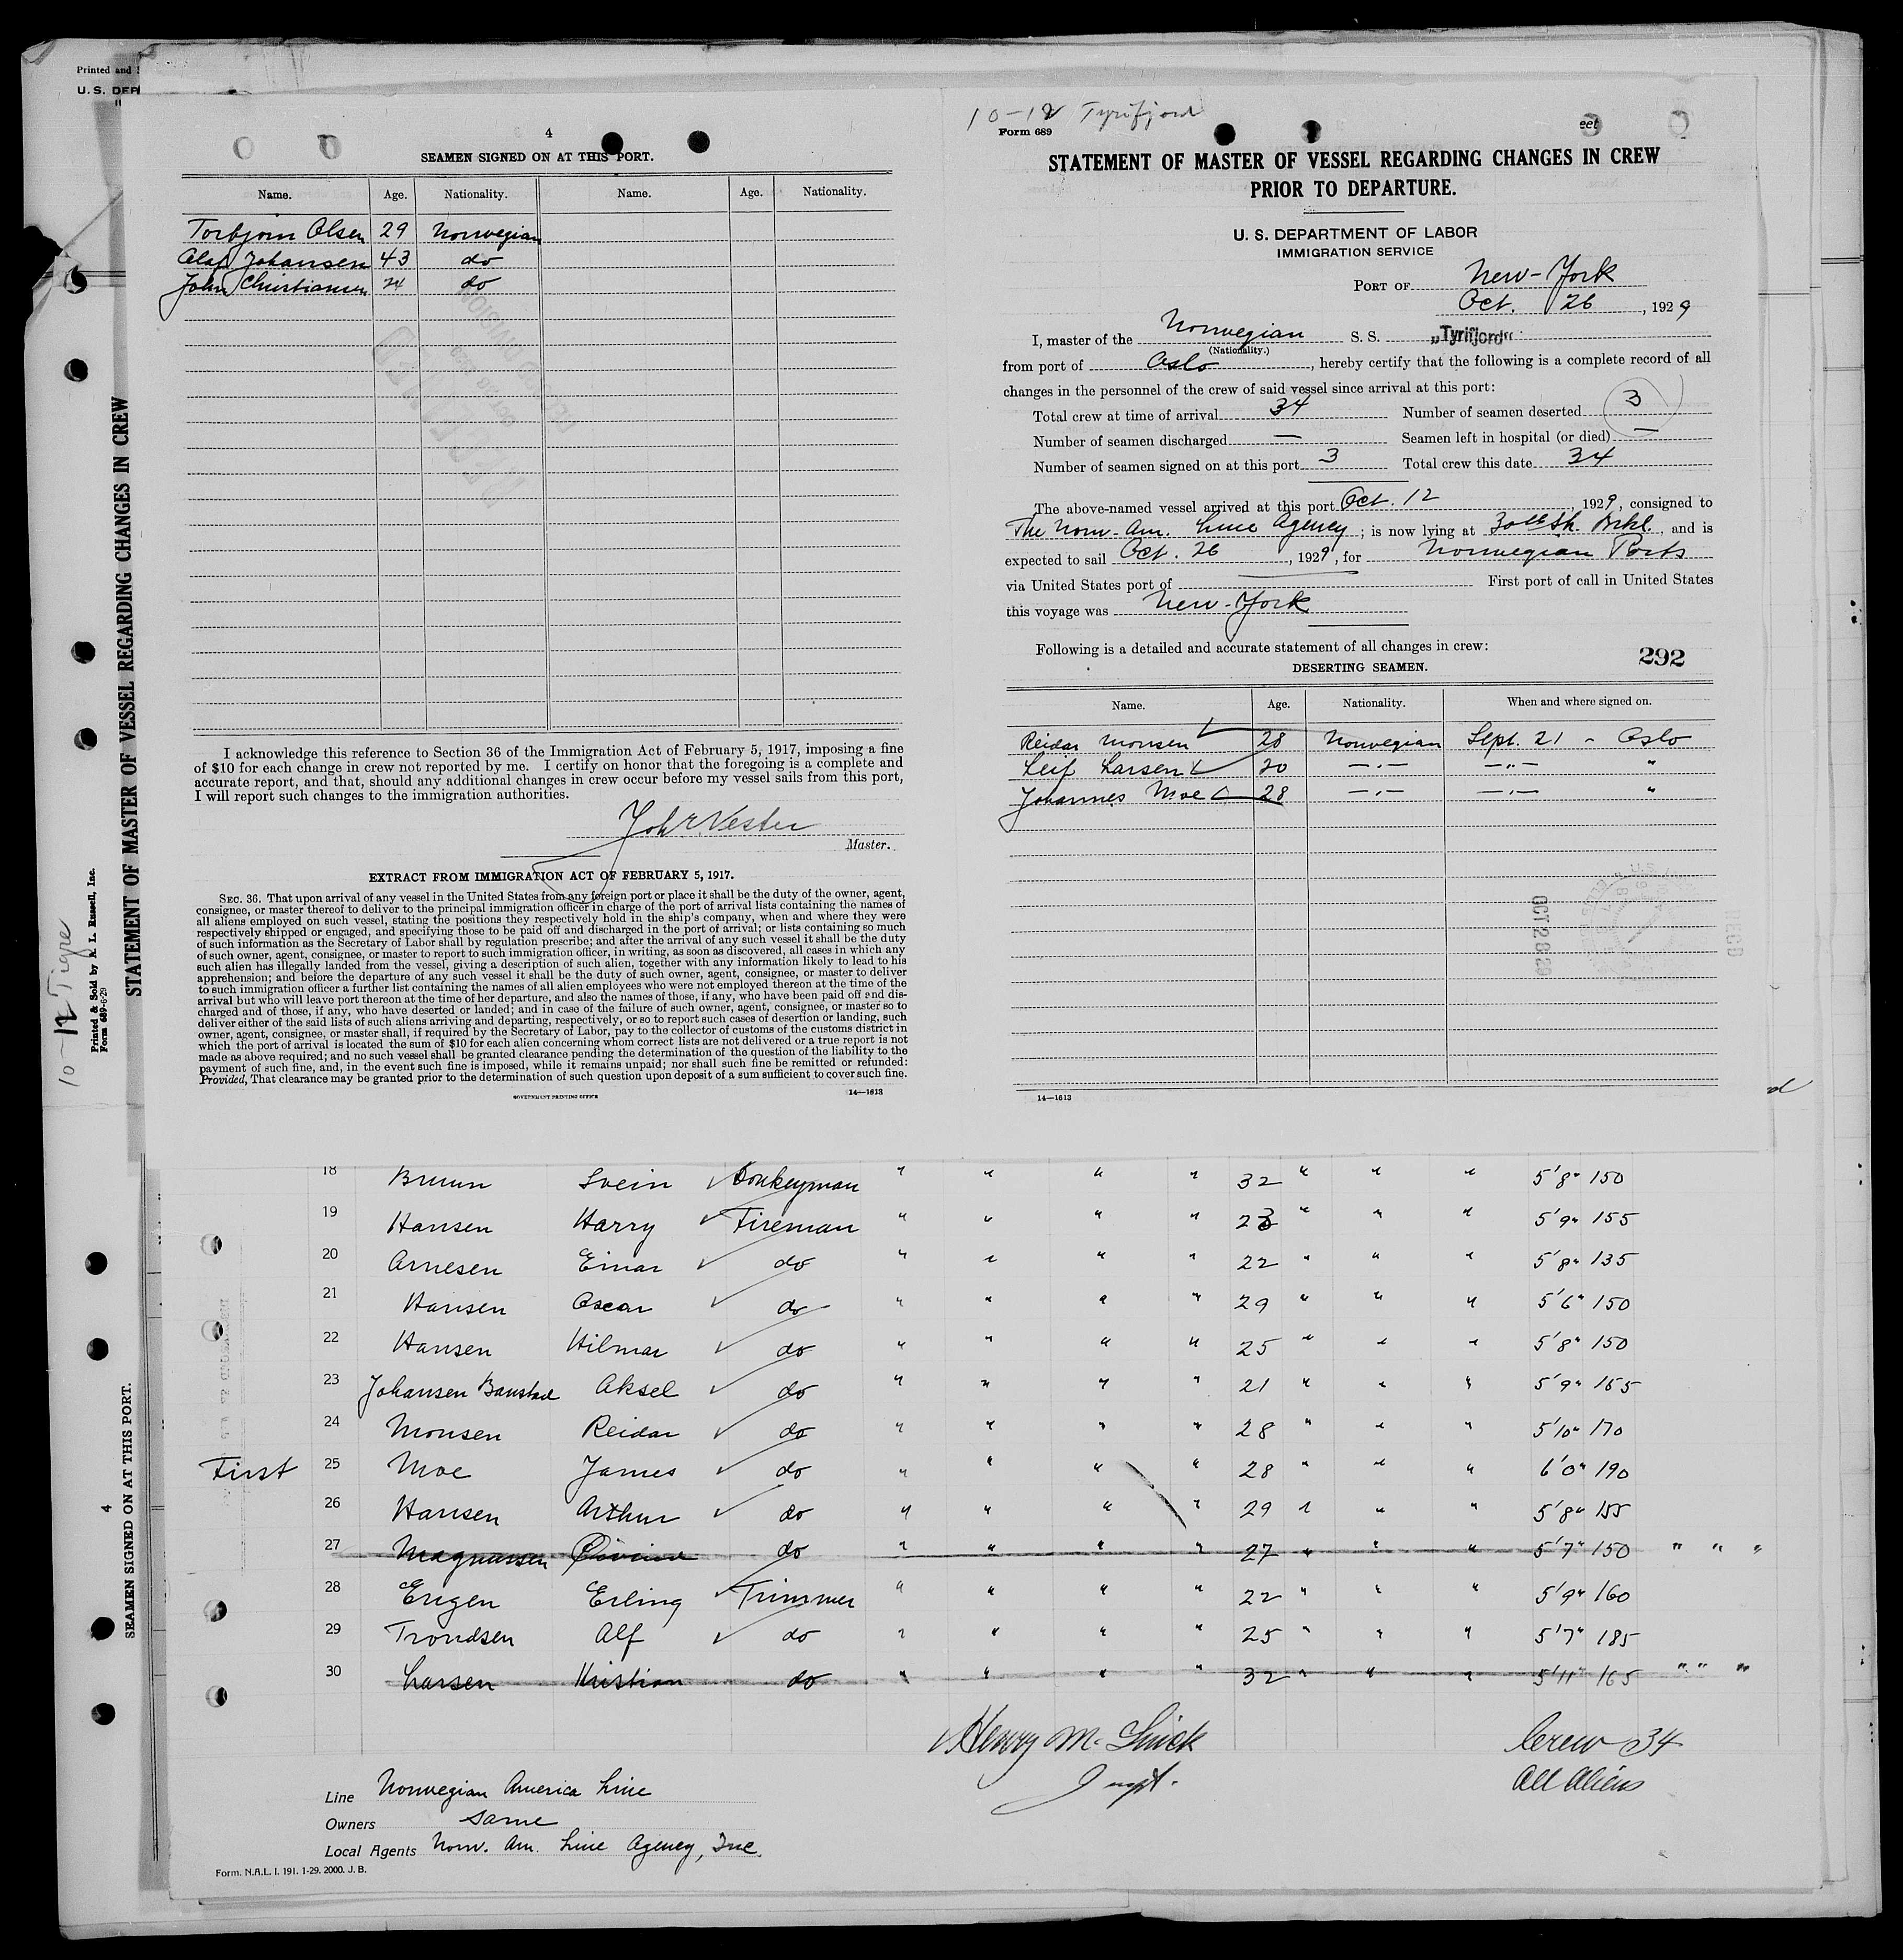 Printed and
U. S. DEP
4
SEAMEN SIGNED ON AT THIS PORT.
Name. Age. Nationality. Name. Age. Nationality.
Torbjorn Olsen 29 Norwegian
Olaf Johansen 43 do
John Christiansen 24 do
I acknowledge this reference to Section 36 of the Immigration Act of February 5, 1917, imposing a fine
of $10 for each change in crew not reported by me. I certify on honor that the foregoing is a complete and
accurate report, and that, should any additional changes in crew occur before my vessel sails from this port,
I will report such changes to the immigration authorities.
Master.
EXTRACT FROM IMMIGRATION ACT OF FEBRUARY 5, 1917.
SEC. 36. That upon arrival of any vessel in the United States from any foreign port or place it shall be the duty of the owner, agent,
consignee, or master thereof to deliver to the principal immigration officer in charge of the port of arrival lists containing the names of
all aliens employed on such vessel, stating the positions they respectively hold in the ship's company, when and where they were
respectively shipped or engaged, and specifying those to be paid off and discharged in the port of arrival; or lists containing so much
of such information as the Secretary of Labor shall by regulation prescribe; and after the arrival of any such vessel it shall be the duty
of such owner, agent, consignee, or master to report to such immigration officer, in writing, as soon as discovered, all cases in which any
such alien has illegally landed from the vessel, giving a description of such alien, together with any information likely to lead to his
apprehension; and before the departure of any such vessel it shall be the duty of such owner, agent, consignee, or master to deliver
to such immigration officer a further list containing the names of all alien employees who were not employed thereon at the time of the
arrival but who will leave port thereon at the time of her departure, and also the names of those, if any, who have been paid off and dis-
charged and of those, if any, who have deserted or landed; and in case of the failure of such owner, agent, consignee, or master so to
deliver either of the said lists of such aliens arriving and departing, respectively, or so to report such cases of desertion or landing, such
owner, agent, consignee, or master shall, if required by the Secretary of Labor, pay to the collector of customs of the customs district in
which the port of arrival is located the sum of $10 for each alien concerning whom correct lists are not delivered or a true report is not
made as above required; and no such vessel shall be granted clearance pending the determination of the question of the liability to the
payment of such fine, and, in the event such fine is imposed, while it remains unpaid; nor shall such fine be remitted or refunded:
Provided, That clearance may be granted prior to the determination of such question upon deposit of a sum sufficient to cover such fine.
GOVERNMENT PRINTING OFFICE 14—1613
10-12 Tyrifjord
Form 689
eet
STATEMENT OF MASTER OF VESSEL REGARDING CHANGES IN CREW
PRIOR TO DEPARTURE.
U. S. DEPARTMENT OF LABOR
IMMIGRATION SERVICE
PORT OF New-York
Oct. 26, 1929
I, master of the Norwegian S. S. „Tyrifjord“
(Nationality.)
from port of Oslo, hereby certify that the following is a complete record of all
changes in the personnel of the crew of said vessel since arrival at this port:
Total crew at time of arrival 34 Number of seamen deserted 3
Number of seamen discharged — Seamen left in hospital (or died) —
Number of seamen signed on at this port 3 Total crew this date 34
The above-named vessel arrived at this port Oct. 12 1929, consigned to
The Norw. Am. Line Agency; is now lying at 30th St. Brkl., and is
expected to sail Oct. 26, 1929, for Norwegian Ports
via United States port of — First port of call in United States
this voyage was New-York
Following is a detailed and accurate statement of all changes in crew:
292
DESERTING SEAMEN.
Name. Age. Nationality. When and where signed on.
Reidar Monsen 28 Norwegian Sept. 21 - Oslo
Leif Larsen 20 —"— —"— "
Johannes Moe 28 —"— —"— "
OCT 28 29
RECD
14—1613
STATEMENT OF MASTER OF VESSEL REGARDING CHANGES IN CREW
Printed & Sold by R. L. Russell, Inc.
Form 689-6-29
10-12 Tigre
4
SEAMEN SIGNED ON AT THIS PORT.
18 Bruun Svein Donkeyman " " " " 32 " " " 5'8" 150
19 Hansen Harry Fireman " " " " 23 " " " 5'9" 155
20 Arnesen Einar do " " " " 22 " " " 5'8" 135
21 Hansen Oscar do " " " " 29 " " " 5'6" 150
22 Hansen Hilmar do " " " " 25 " " " 5'8" 150
23 Johansen Banstad Aksel do " " " " 21 " " " 5'9" 165
24 Monsen Reidar do " " " " 28 " " " 5'10" 170
First 25 Moe James do " " " " 28 " " " 6'0" 190
26 Hansen Arthur do " " " " 29 " " " 5'8" 155
27 Magnussen do " " " " 27 " " " 5'7" 150 " " "
28 Engen Erling Trimmer " " " " 22 " " " 5'9" 160
29 Trondsen Alf do " " " " 25 " " " 5'7" 185
30 Larsen Kristian do " " " " 32 " " " 5'11" 165 " " "
Henry M. Crew 34
Inspt. All Aliens
Line Norwegian America Line
Owners Same
Local Agents Norw. Am. Line Agency, Inc.
Form. N.A.L. I. 191. 1-29. 2000. J. B.